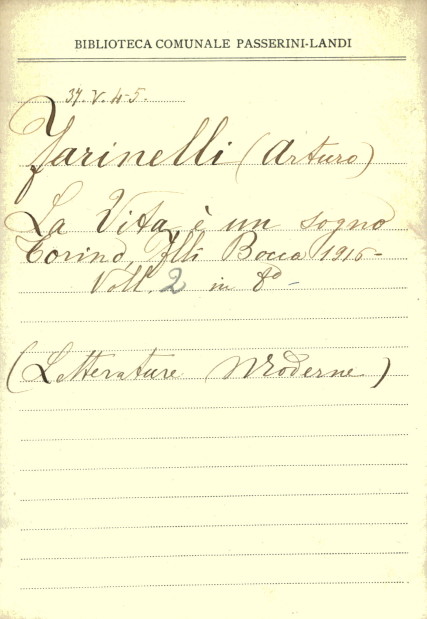 BIBLIOTECA COMUNALE PASSERINI-LANDI
37.V.4-5.
Farinelli (Arturo)
La Vita è un sogno
Torino, Flli Bocca 1916-
Voll. 2 in 8º-
(Letterature Moderne)